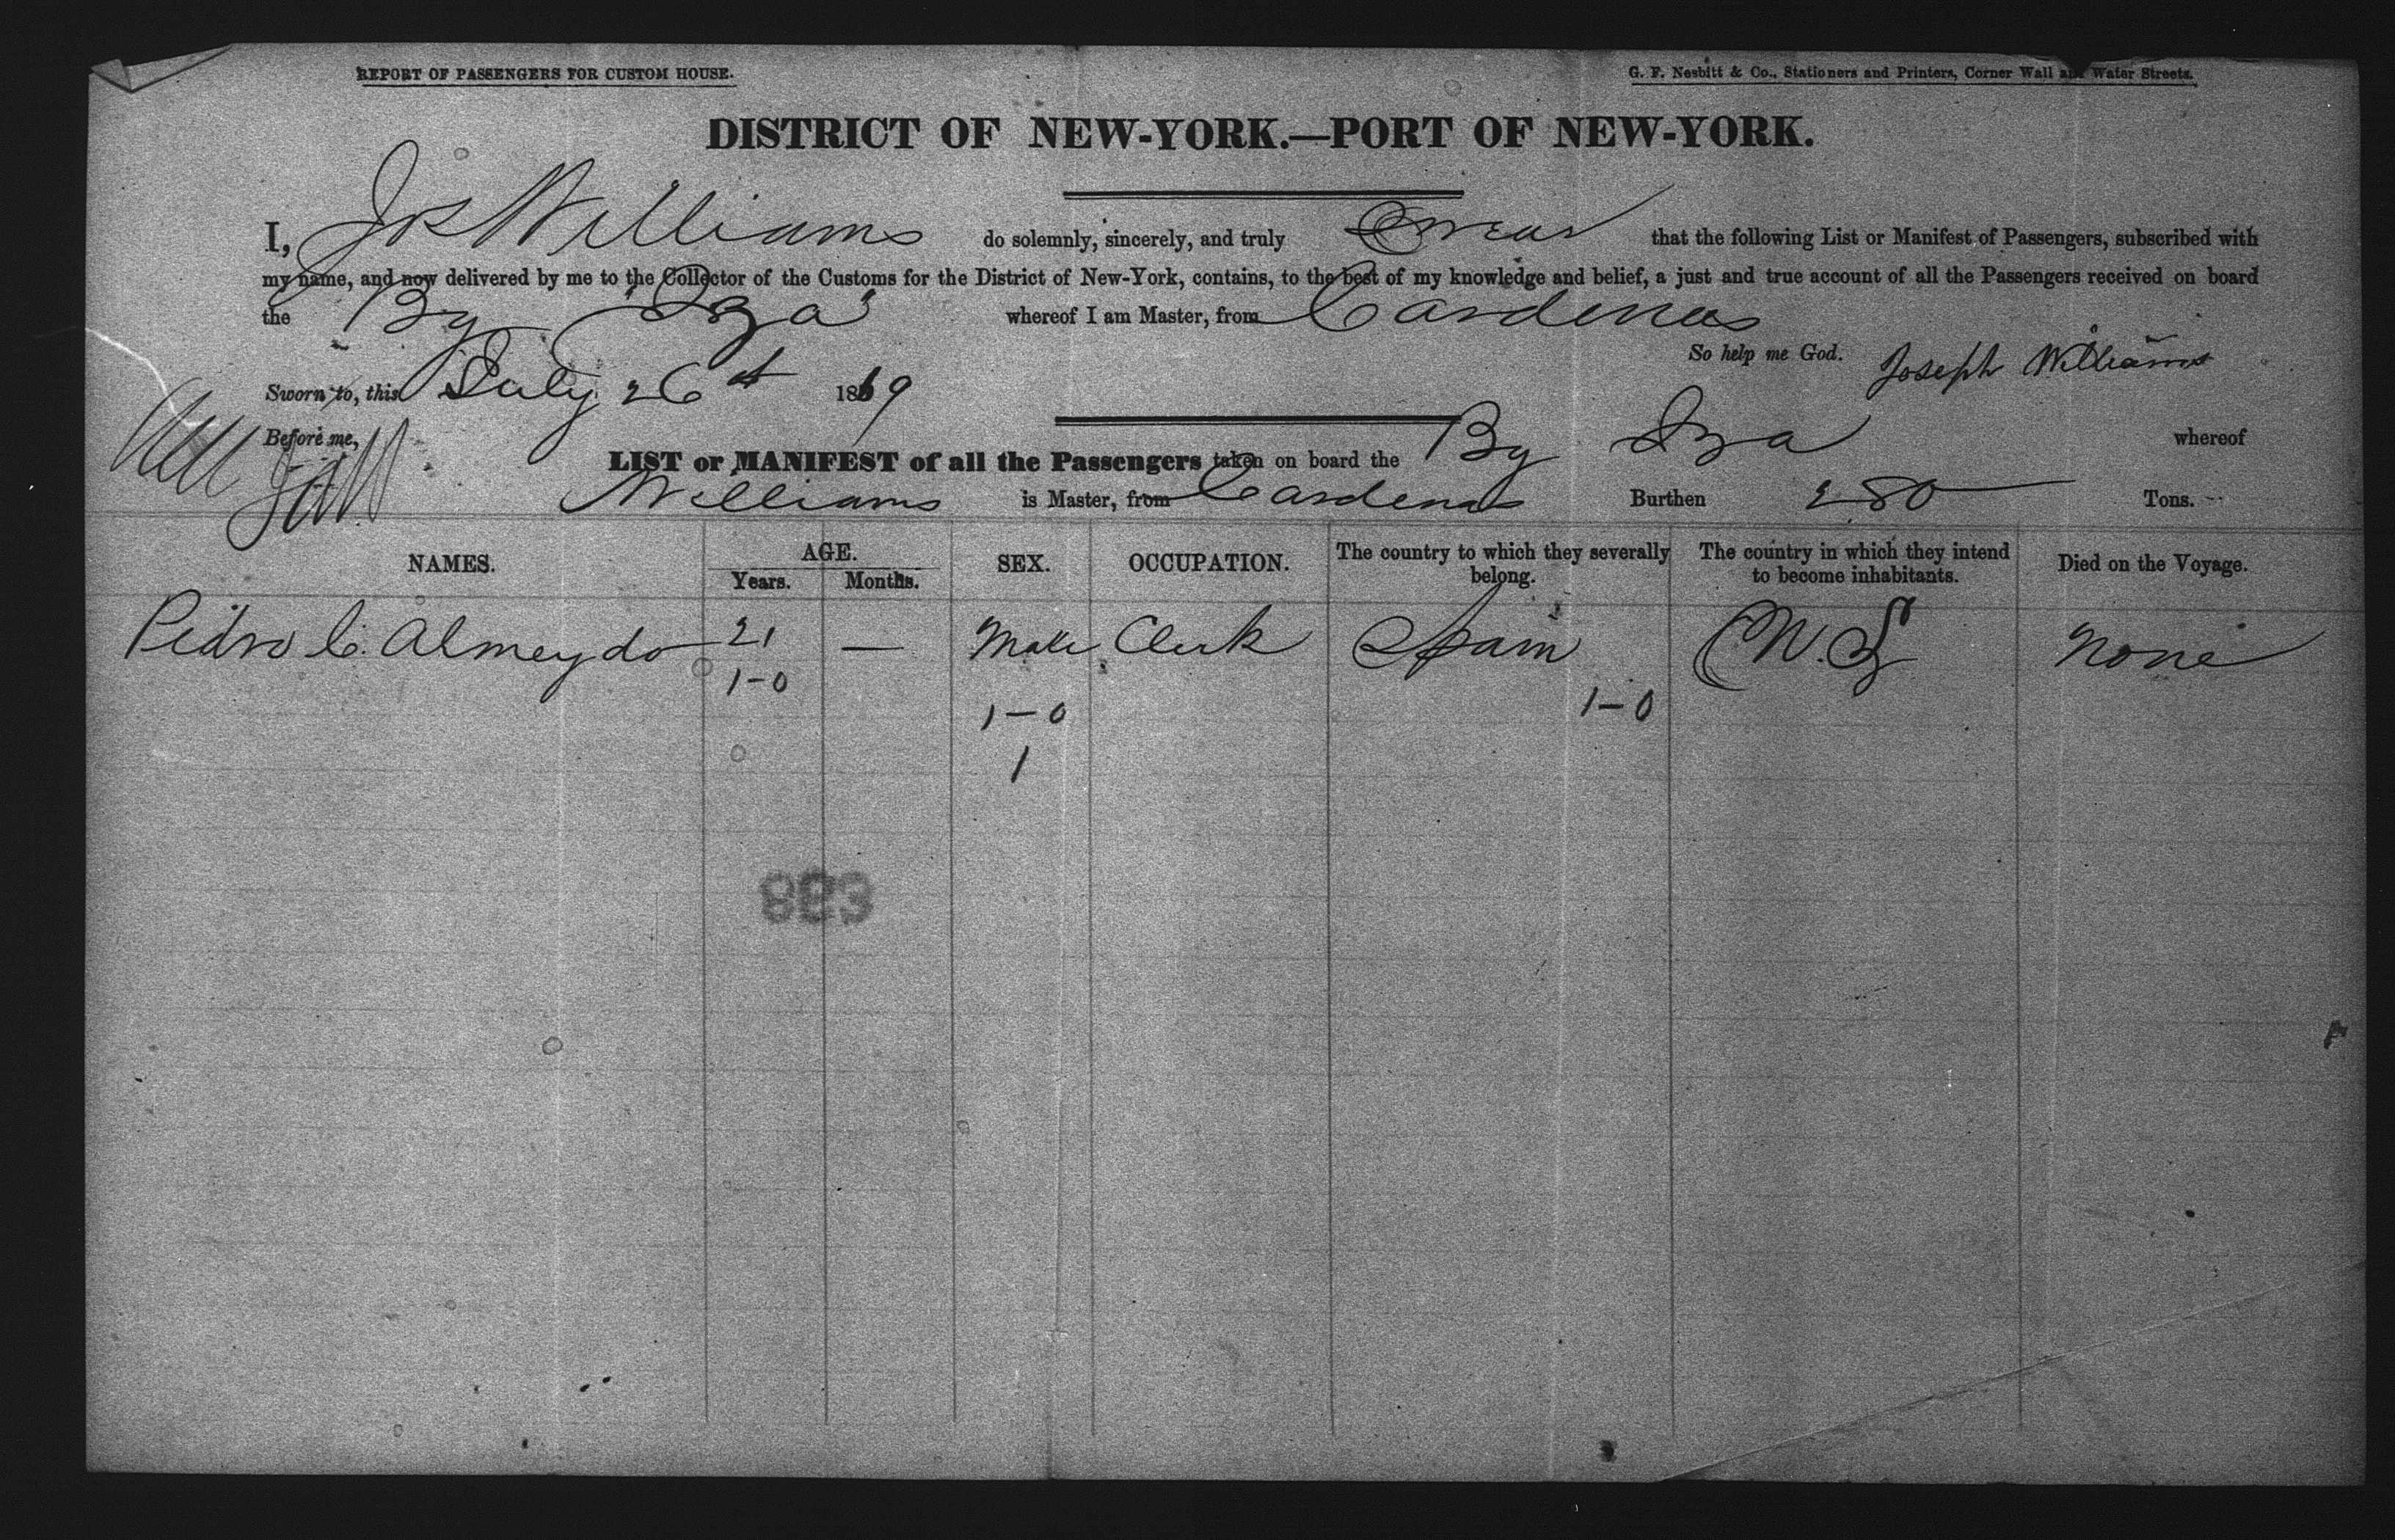 REPORT OF PASSENGERS FOR CUSTOM HOUSE.
G. F. Nesbitt & Co., Stationers and Printers, Corner Wall and Water Streets.
DISTRICT OF NEW-YORK.—PORT OF NEW-YORK.
I, Jos Williams do solemnly, sincerely, and truly Swear that the following List or Manifest of Passengers, subscribed with
my name, and now delivered by me to the Collector of the Customs for the District of New-York, contains, to the best of my knowledge and belief, a just and true account of all the Passengers received on board
the Bg "Iza" whereof I am Master, from Cardenas
So help me God. Joseph Williams
Sworn to, this July 26th 1869
Before me,
LIST or MANIFEST of all the Passengers taken on board the Bg Iza whereof
Williams is Master, from Cardenas Burthen 280 Tons.
NAMES. AGE. Years. Months. SEX. OCCUPATION. The country to which they severally belong. The country in which they intend to become inhabitants. Died on the Voyage.
Pedro C. Almeydo 21 — Male Clerk Spain None
1-0
1-0 1-0
1